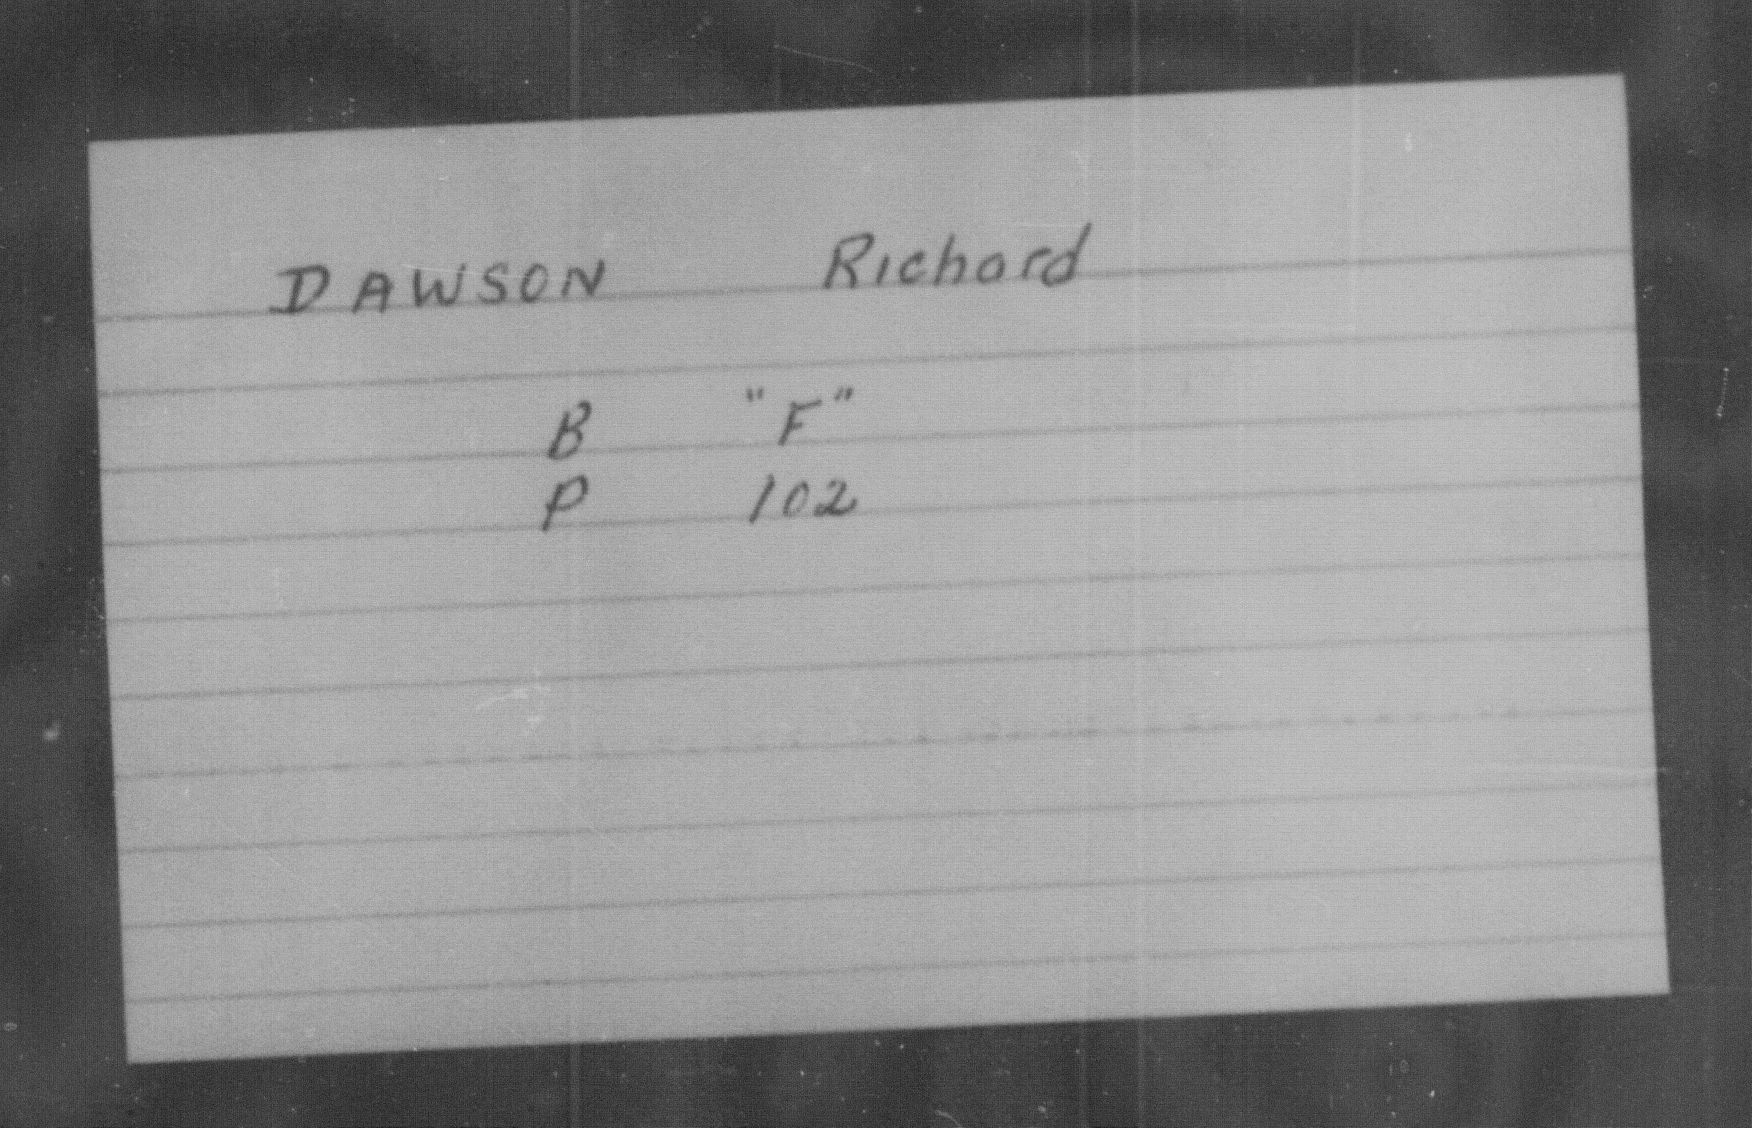 DAWSON Richard
B "F"
P 102